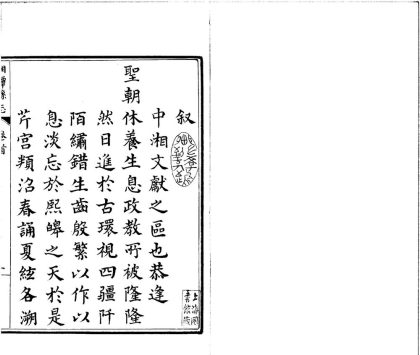 叙
中湘文獻之區也恭逢
聖朝休養生息政教所被隆隆
然日進於古環視四疆阡
陌繡錯生齒殷繁以作以
息淡忘於熙皞之天於是
芹宫頖沼春誦夏絃各溯